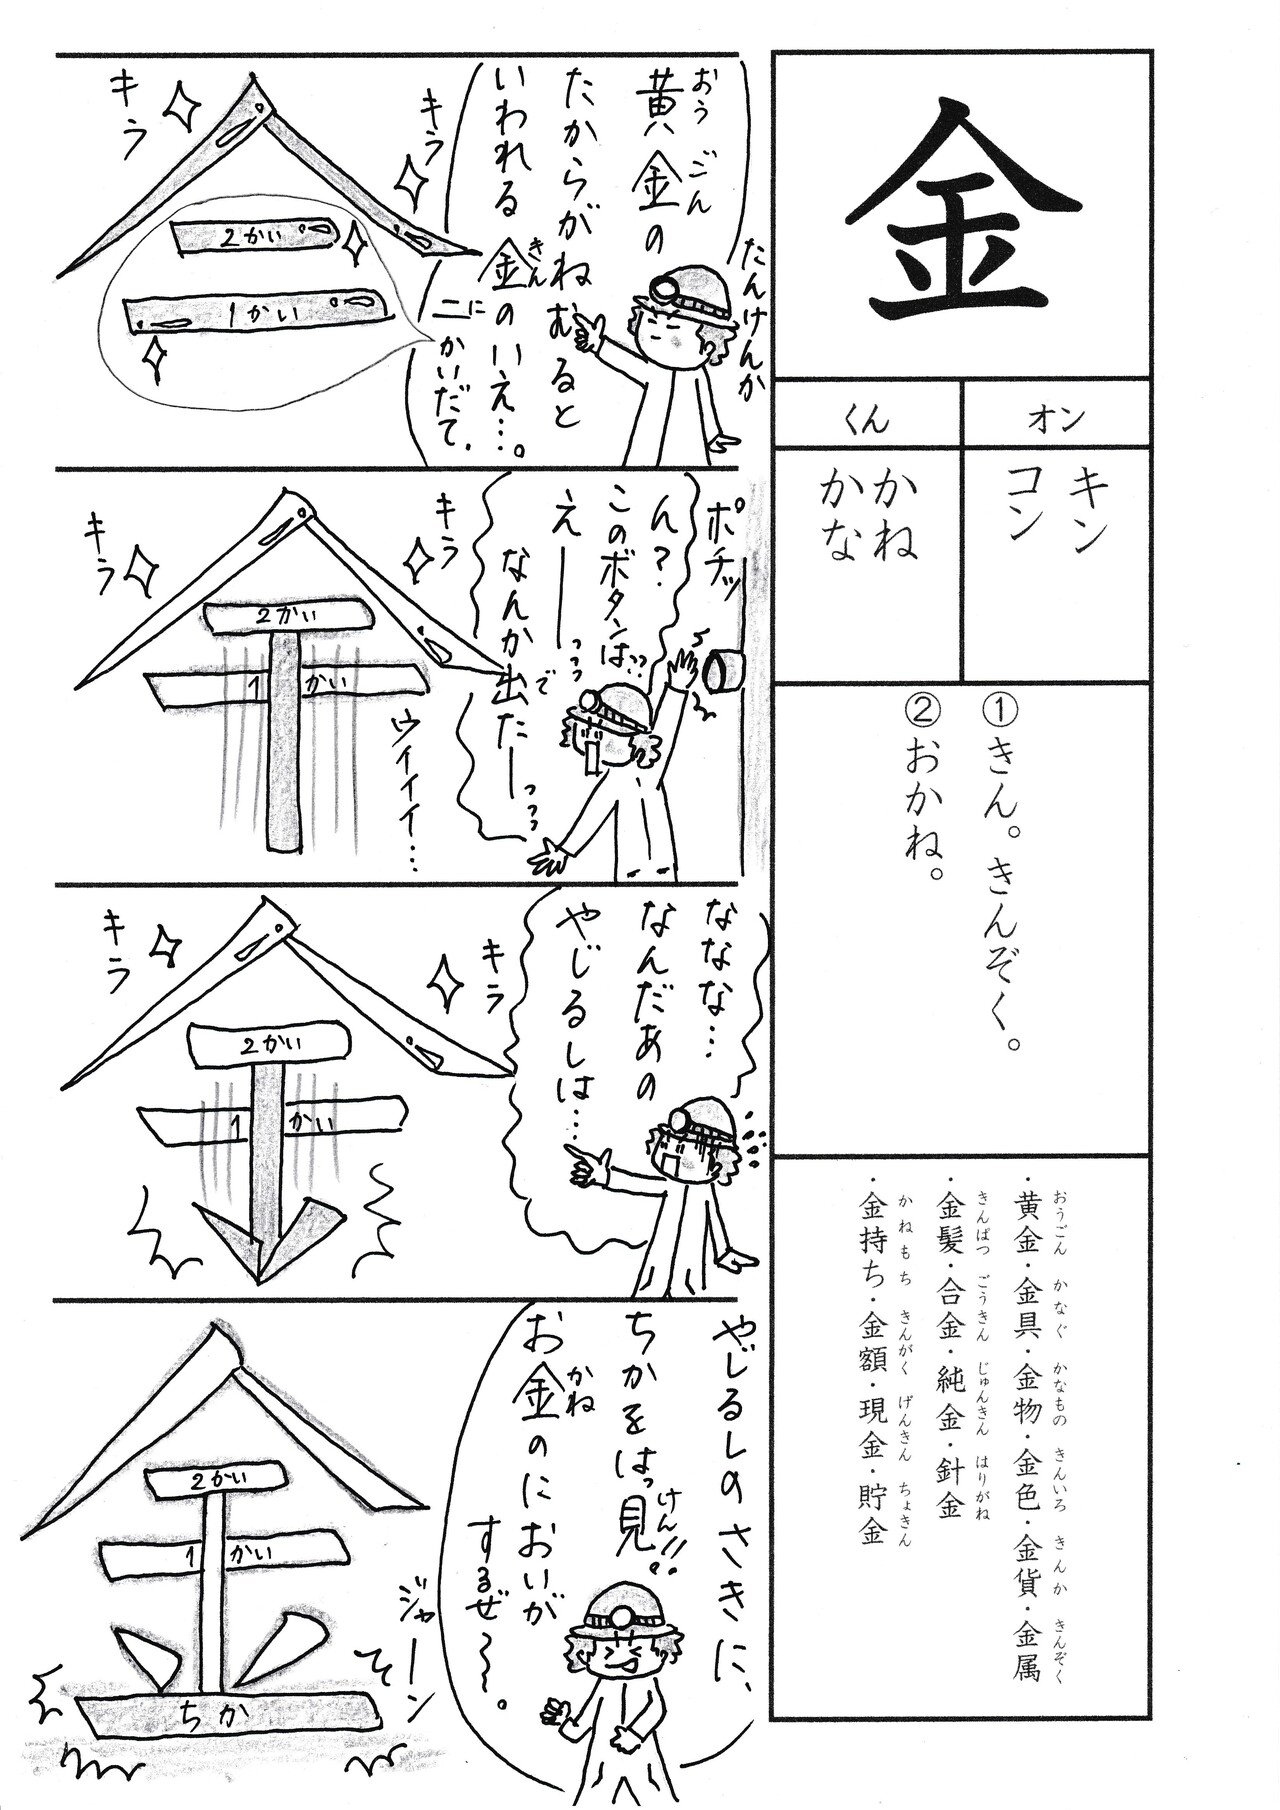 金
オン
くん
キン
コン
かね
かな
①きん。きんぞく。
②おかね。
・黄金・金具・金物・金色・金貨・金属
おうごん かなぐ かなもの きんいろ きんか きんぞく
・金髪・合金・純金・針金
きんぱつ ごうきん じゅんきん はりがね
・金持ち・金額・現金・貯金
かねもち きんがく げんきん ちょきん
たんけんか
黄金の
おうごん
たからがねむると
いわれる金のいえ…。
きん
二かいだて。
に
キラ
キラ
2かい
1かい
ポチッ
ん?
このボタンは??
えーーっっっ
なんか出たーっっっ
で
キラ
キラ
2かい
1かい
ウイイイ…
ななな…
なんだあの
やじるしは…
キラ
キラ
2かい
1かい
やじるしのさきに、
ちかをはっ見!!。
けん
お金のにおいが
かね
するぜ〜。
2かい
1かい
ジャーン
ちか